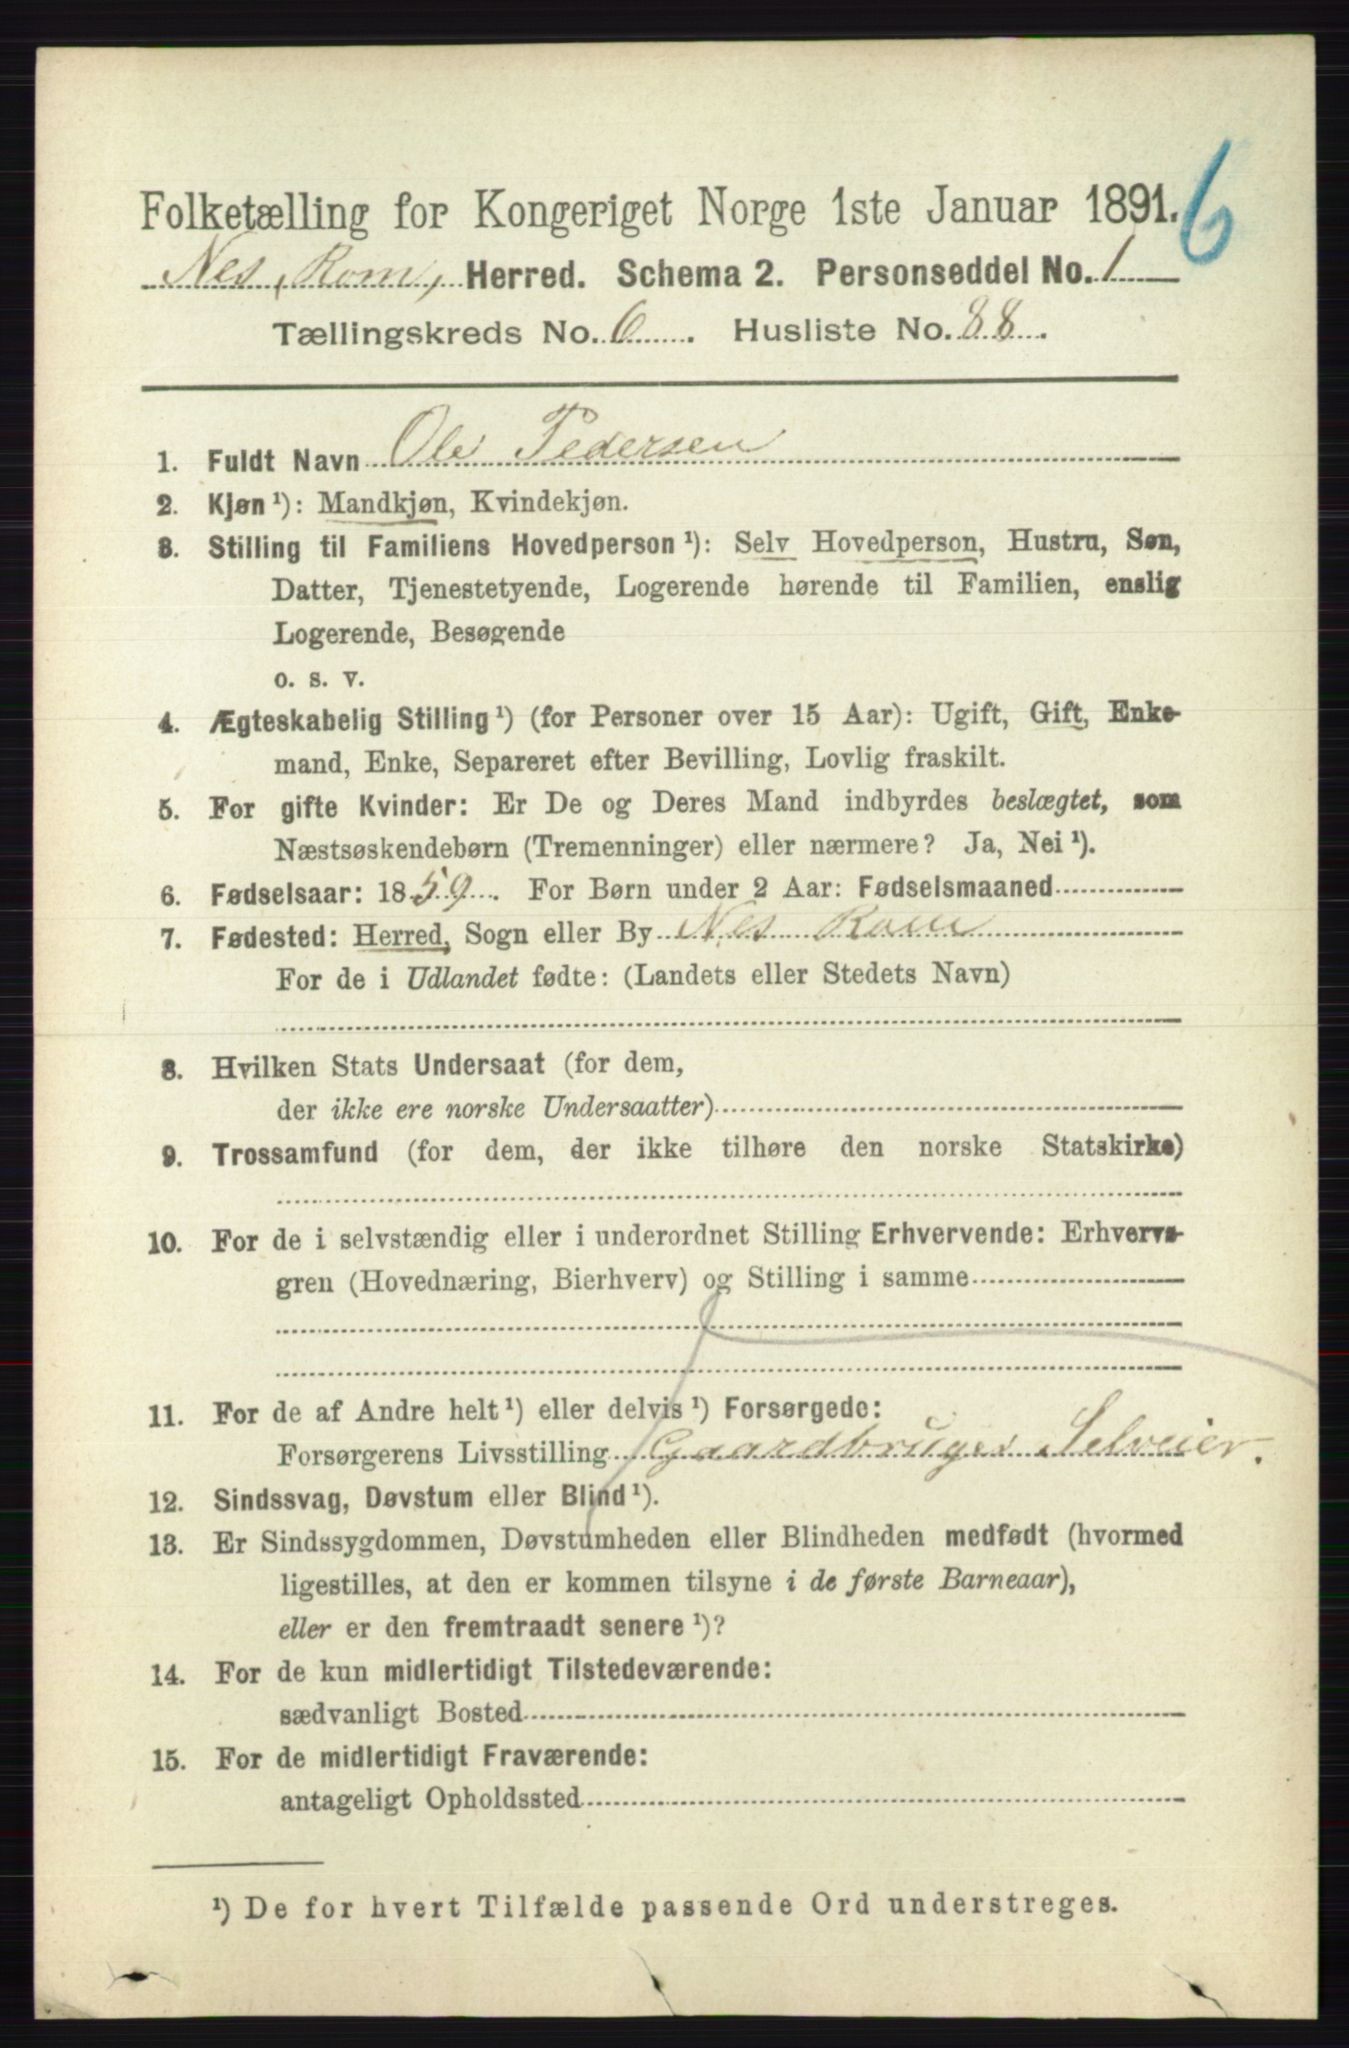 Folketælling for Kongeriget Norge 1ste Januar 1891. 6
Nes, Rom, Herred. Schema 2. Personseddel No. 1
Tællingskreds No. 6. Husliste No. 88.
1. Fuldt Navn Ole Pedersen
2. Kjøn ¹): Mandkjøn, Kvindekjøn.
3. Stilling til Familiens Hovedperson ¹): Selv Hovedperson, Hustru, Søn,
Datter, Tjenestetyende, Logerende hørende til Familien, enslig
Logerende, Besøgende
o. s. v.
4. Ægteskabelig Stilling ¹) (for Personer over 15 Aar): Ugift, Gift, Enke-
mand, Enke, Separeret efter Bevilling, Lovlig fraskilt.
5. For gifte Kvinder: Er De og Deres Mand indbyrdes beslægtet, som
Næstsøskendebørn (Tremenninger) eller nærmere? Ja, Nei ¹).
6. Fødselsaar: 1859. For Børn under 2 Aar: Fødselsmaaned
7. Fødested: Herred, Sogn eller By Nes Rom
For de i Udlandet fødte: (Landets eller Stedets Navn)
8. Hvilken Stats Undersaat (for dem,
der ikke ere norske Undersaatter)
9. Trossamfund (for dem, der ikke tilhøre den norske Statskirke)
10. For de i selvstændig eller i underordnet Stilling Erhvervende: Erhvervs-
gren (Hovednæring, Bierhverv) og Stilling i samme
11. For de af Andre helt ¹) eller delvis ¹) Forsørgede:
Forsørgerens Livsstilling Gaardbruger Selveier.
12. Sindssvag, Døvstum eller Blind ¹).
13. Er Sindssygdommen, Døvstumheden eller Blindheden medfødt (hvormed
ligestilles, at den er kommen tilsyne i de første Barneaar),
eller er den fremtraadt senere ¹)?
14. For de kun midlertidigt Tilstedeværende:
sædvanligt Bosted
15. For de midlertidigt Fraværende:
antageligt Opholdssted
¹) De for hvert Tilfælde passende Ord understreges.